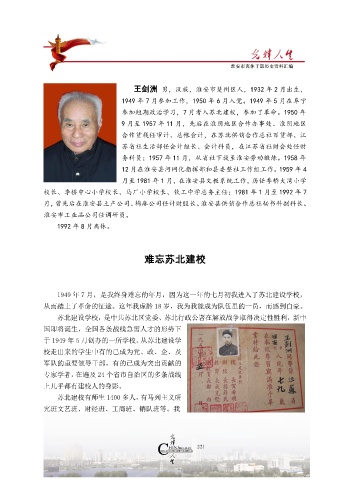 光辉人生
淮安市离休干部历史资料汇编
王剑洲 男，汉族，淮安市楚州区人，1932 年 2 月出生，
1949 年 7 月参加工作，1950 年 6 月入党。1949 年 5 月在阜宁
参加短期政治学习，7 月考入苏北建校，参加了革命。1950 年
9 月至 1957 年 11 月，先后在淮阴地区合作办事处、淮阴地区
合作货栈任审计、总账会计，在苏北供销合作总社百货部、江
苏省社生活科任会计组长、会计科员，在江苏省社财会处任财
务科员；1957 年 11 月，从省社下放至淮安劳动锻炼。1958 年
12 月在淮安县河网化指挥部和县委整社工作组工作。1959 年 4
月至 1981 年 1 月，在淮安县文教系统工作，历任季桥大湾小学
校长、季桥中心小学校长、马厂小学校长、钦工中学总务主任；1981 年 1 月至 1992 年 7
月，曾先后在淮安县土产公司、棉麻公司任计财股长，淮安县供销合作总社秘书科副科长、
淮安市工业品公司任调研员。
1992 年 8 月离休。
难忘苏北建校
1949 年 7 月，是我终身难忘的年月，因为这一年的七月初我进入了苏北建设学校，
从而踏上了革命的征途。这年我虚龄 18 岁，我为我能成为队伍里的一员，而感到自豪。
苏北建设学校，是中共苏北区党委、苏北行政公署在解放战争取得决定性胜利，新中
国即将诞生，全国各条战线急需人才的形势下
于 1949 年 6 月创办的一所学校，从苏北建设学
校走出来的学生中有的已成为党、政、企、及
军队的重要领导干部，有的已成为突出贡献的
专家学者，在遍及 24 个省市自治区的多条战线
上几乎都有建校人的身影。
苏北建校有师生 1400 多人，有马列主义研
究班文艺班、财经班、工商班、销队班等。我
221